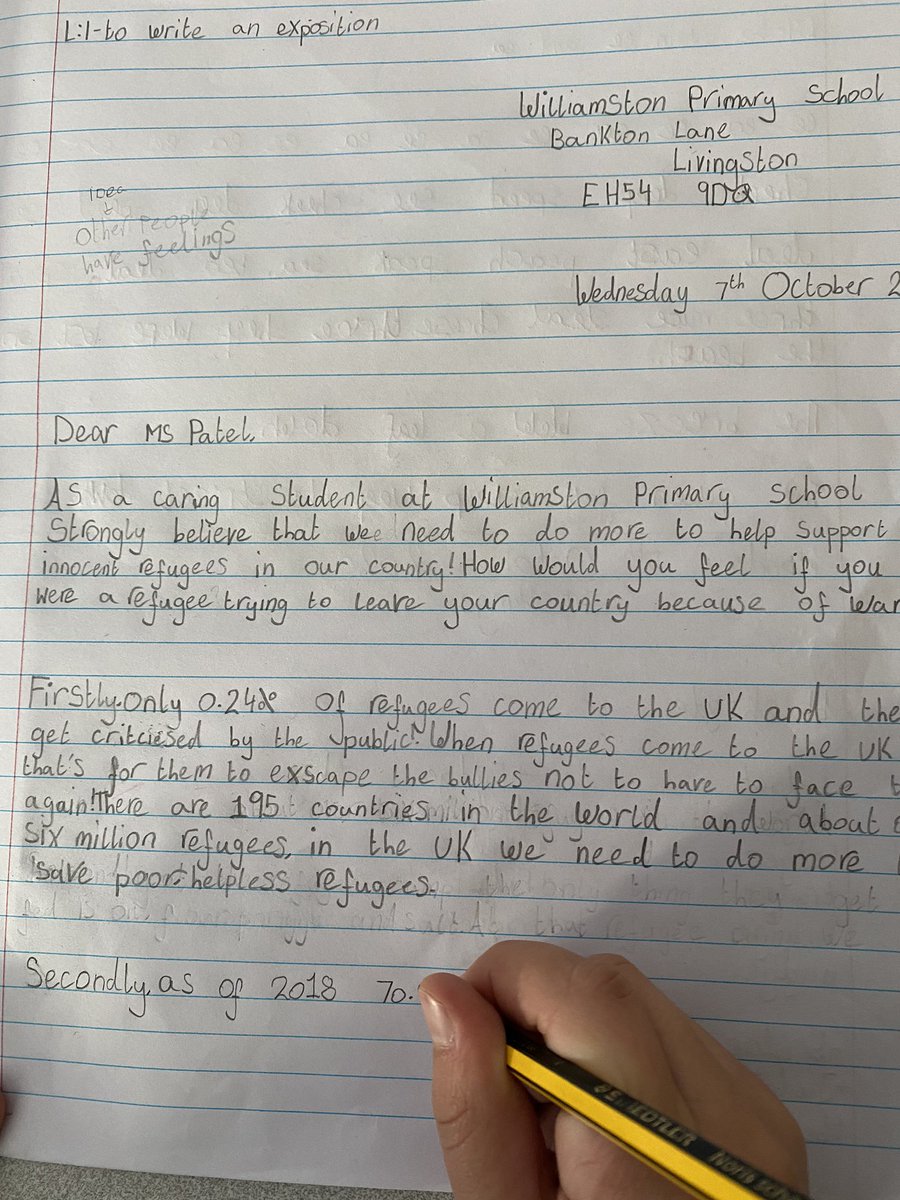 L:I-to write an exposition
Williamston Primary School
Bankton Lane
Livingston
EH54 9DQ
idea
Other People
have feelings
Wednesday 7th October 2
Dear Ms Patel,
As a caring Student at Williamston Primary School
Strongly believe that we need to do more to help Support
innocent refugees in our country! How would you feel if you
were a refugee trying to leave your country because of war
Firstly, only 0.24% of refugees come to the UK and the
get critciesed by the public! When refugees come to the UK
that's for them to exscape the bullies not to have to face t
again! There are 195 countries in the world and about
six million refugees, in the UK we need to do more
save poor helpless refugees.
Secondly, as of 2018 70.
STAEDTLER